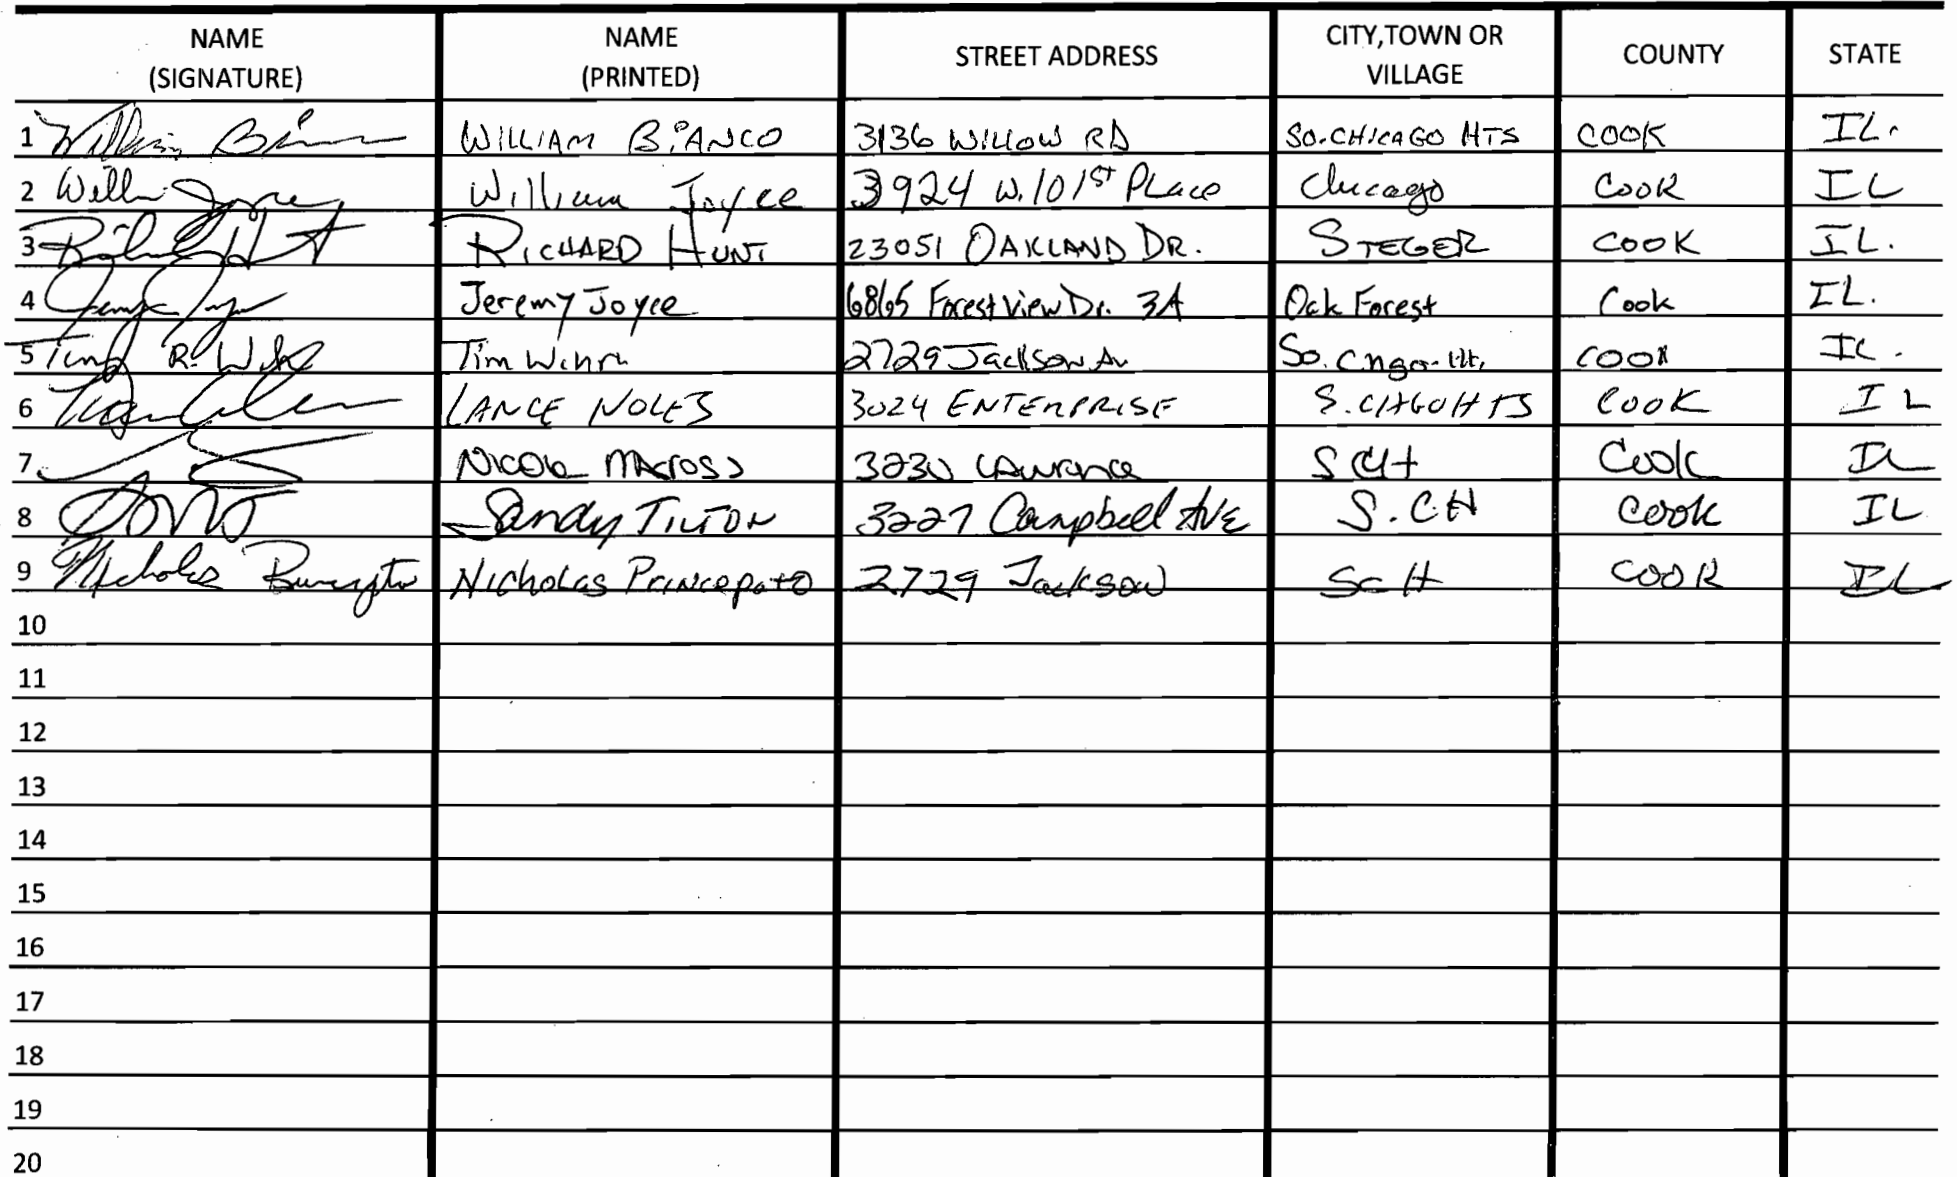 NAME (SIGNATURE) NAME (PRINTED) STREET ADDRESS CITY,TOWN OR VILLAGE COUNTY STATE
1 William WILLIAM BIANCO 3136 WILLOW RD SO.CHICAGO HTS COOK IL.
2 Joyce William Joyce 3924 W. 101st PLace Chicago COOK IL
3 RICHARD HUNT 23051 OAKLAND DR. STEGER COOK IL.
4 Jeremy Joyce 6865 Forest View Dr. 3A Oak Forest Cook IL.
5 R. Tim 2729 Jackson Av So. COOK IL.
6 LANCE NOLES 3024 ENTERPRISE COOK IL
7 3230 Lawrence SCH Cook IL
8 Sandy TILTON 3227 Campbell AVE S.CH Cook IL
9 Nicholas Nicholas 2729 Jackson ScH COOK IL
10
11
12
13
14
15
16
17
18
19
20